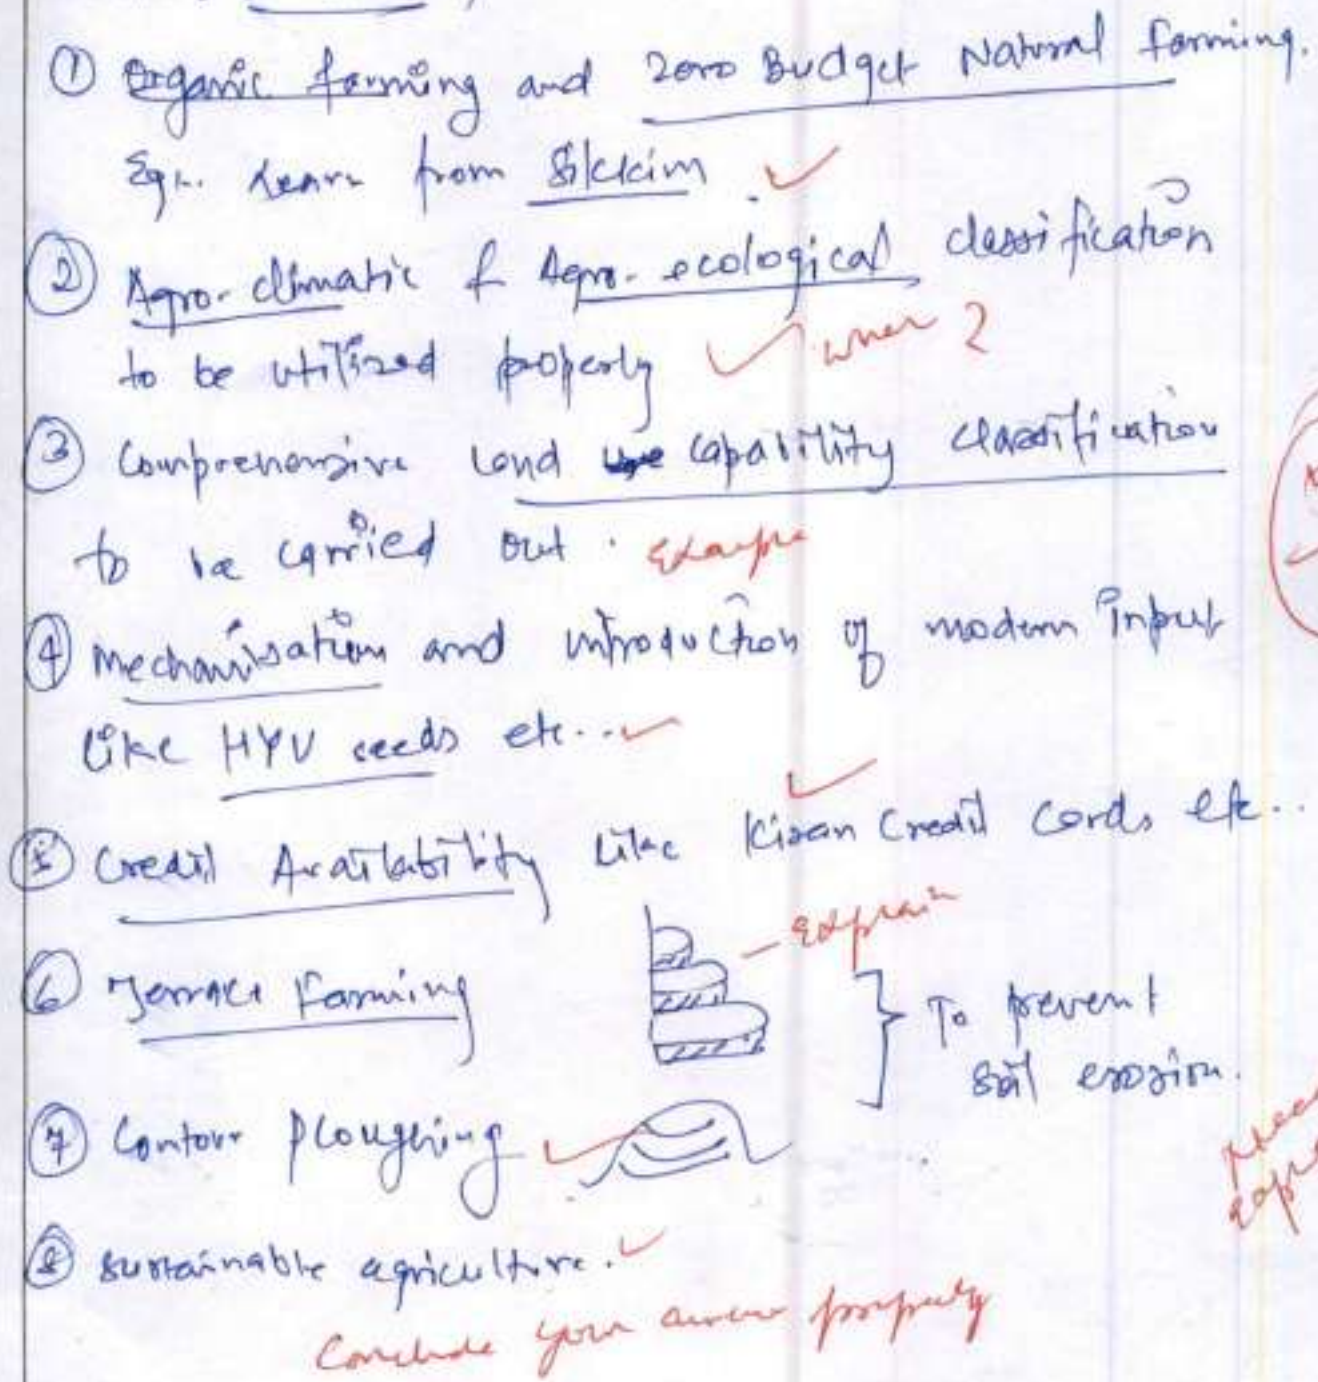 ① Organic farming and zero Budget Natural farming.
Eg:. Learn from Sikkim
② Agro-climatic & Agro-ecological classification
to be utilized properly
③ Comprehensive land capability classification
to be carried out. Example
④ Mechanisation and introduction of modern input
like HYV seeds etc...
⑤ Credit Availability like Kisan Credit Cards etc...
Explain
⑥ Terrace Farming
To prevent
soil erosion.
⑦ Contour Ploughing
⑧ Sustainable agriculture.
Conclude your answer properly